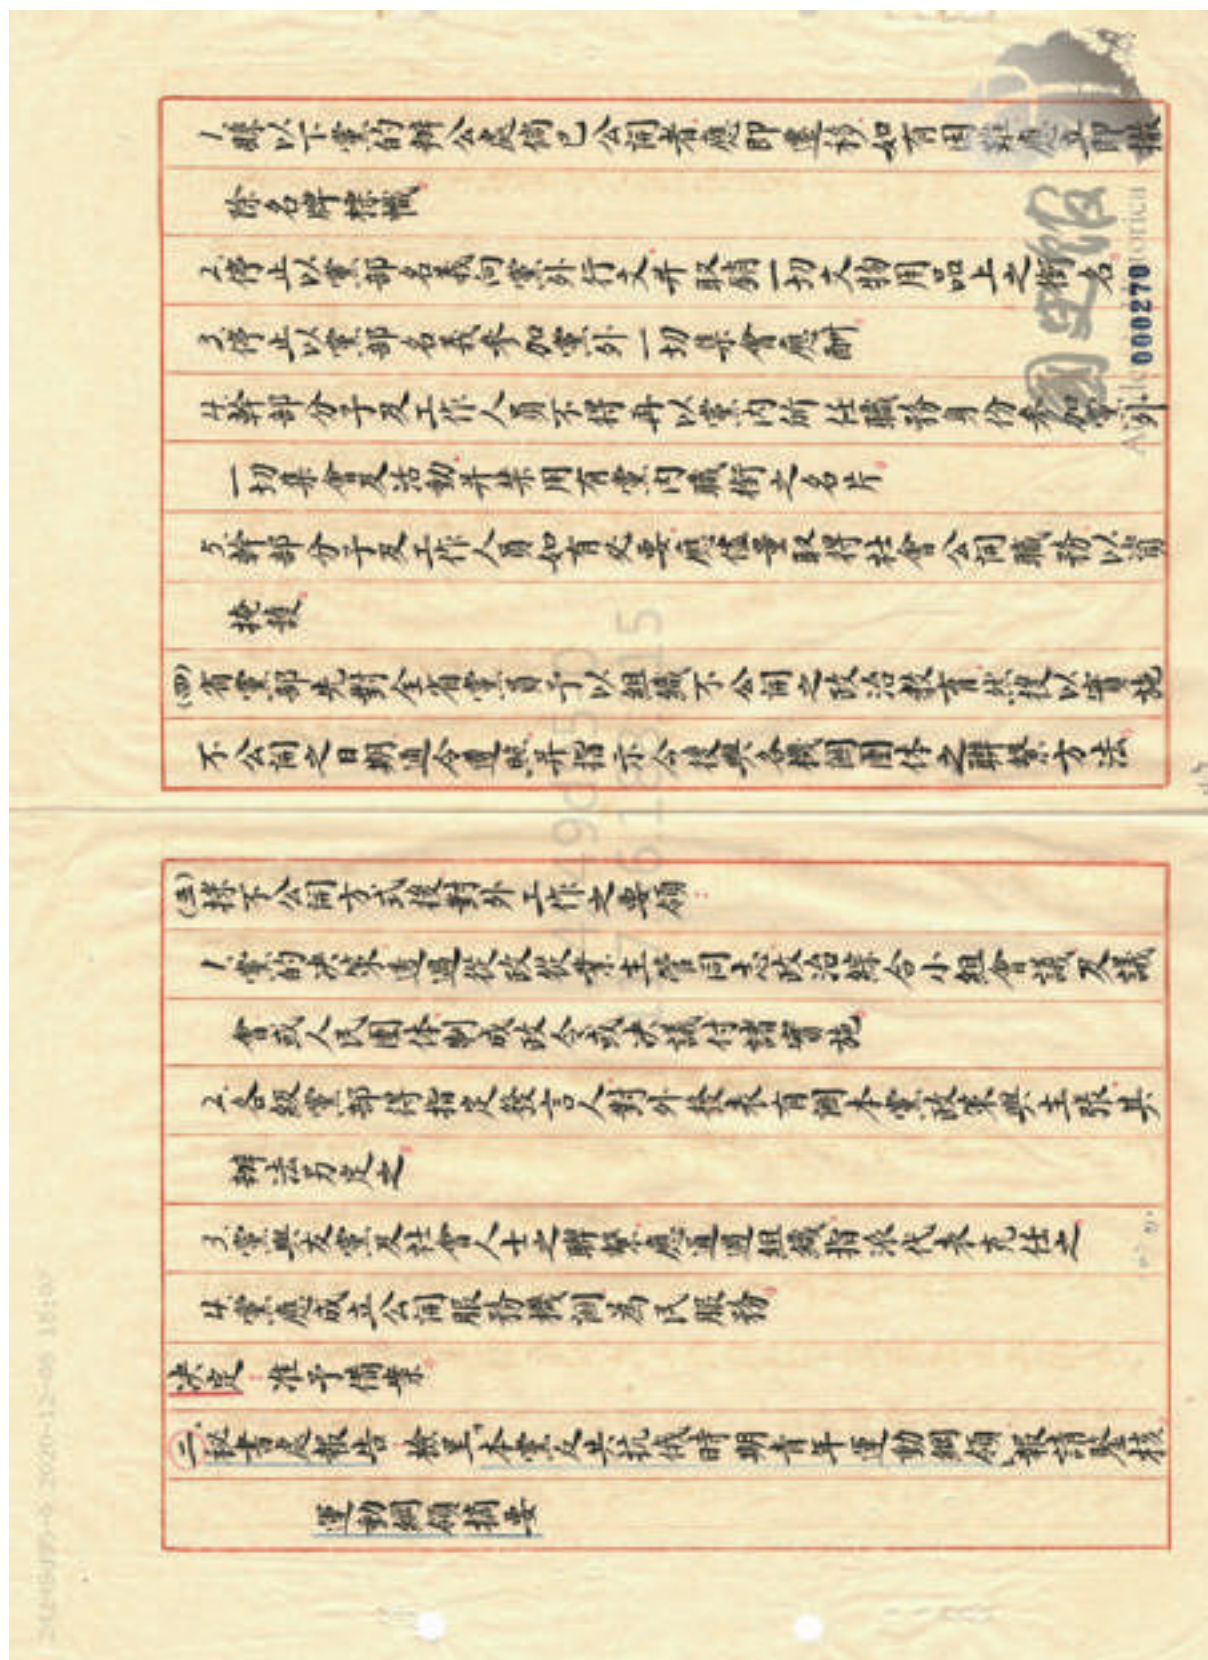 1.縣以下黨的辦公處倘已公開者應即遷移如有困難應立即撤
除名牌標幟。
2.停止以黨部名義向黨外行文并取銷一切文物用品上之銜名。
3.停止以黨部名義參加黨外一切集會應酬。
4.幹部分子及工作人員不得再以黨內所任職務身份參加黨外
一切集會及活動并禁用有黨內職銜之名片。
5.幹部分子及工作人員如有必要應儘量取得社會公開職務以資
掩護。
(四)省黨部先對全省黨員予以組織不公開之政治教育然後以實施
不公開之日期通令遵照并指示今後與各機關團体之聯繫方法。
(五)採不公開方式後對外工作之要領：
1.黨的決策透過從政從業主管同志政治綜合小組會議及議
會或人民團体制成政令或決議付諸實施。
2.各級黨部得指定發言人對外發表有關本黨政策與主張其
辦法另定之。
3.黨與友黨及社會人士之聯繫應通過組織指派代表充任之。
4.黨應成立公開服務機關為民服務。
決定：准予備案。
二、秘書處報告 檢呈「本黨反共抗俄時期青年運動綱領」報請鑒核
運動綱領摘要
國史館
Academia Historica
000270
449d5b
176.18.8.15